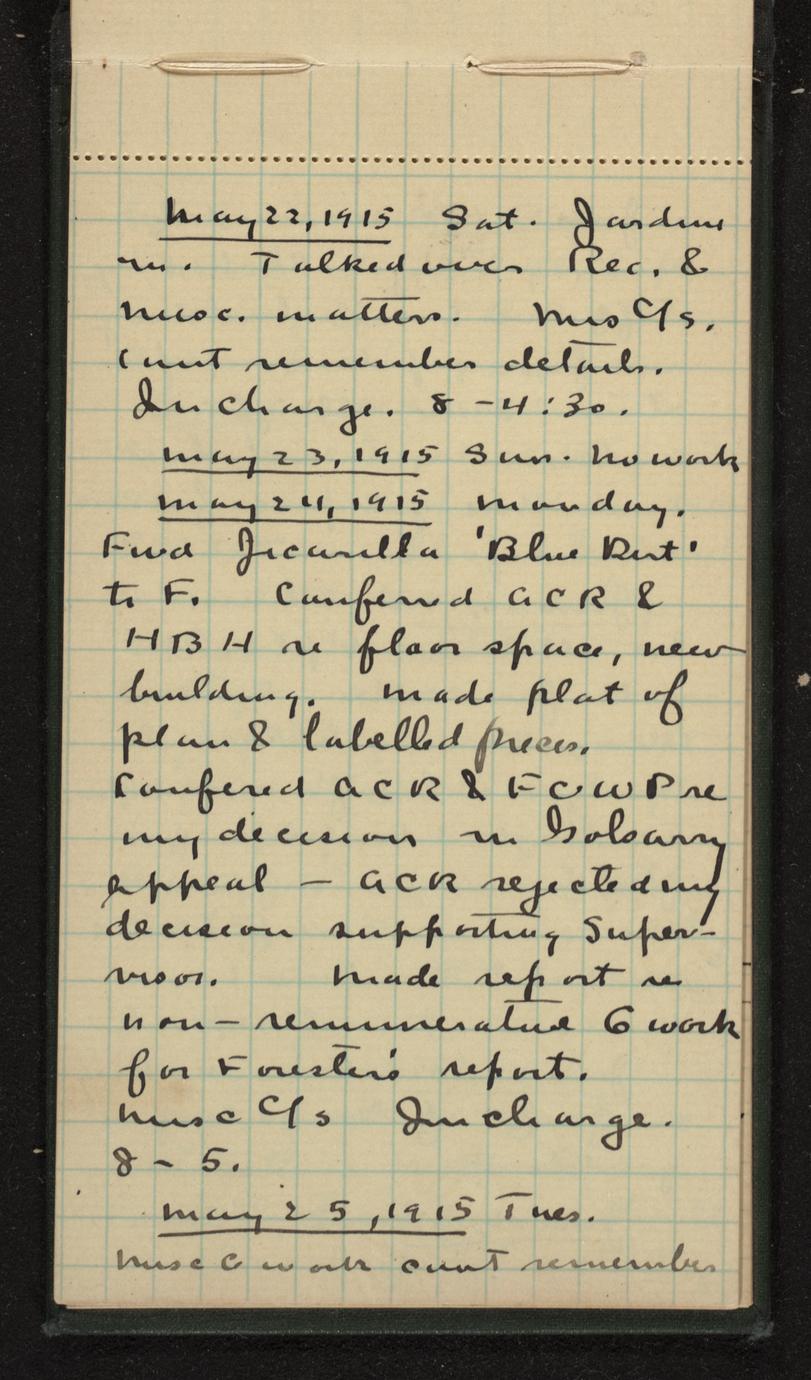 May 22, 1915 Sat. Jardine
in. Talked over Rec. &
misc. matters. Misc C/s.
Cant remember details.
In charge. 8 - 4:30.
May 23, 1915 Sun. No work
May 24, 1915 Monday.
Fwd Jicarilla 'Blue Dirt'
to F. Conferred ACR &
HBH re floor space, new
building. Made plat of
plan & labelled pieces.
Confered ACR & FCWP re
my decision in
appeal — ACR rejected my
decision supporting Super-
visor. Made report re
non-remunerative G work
for Forester's report.
Misc C/s In charge.
8 - 5.
May 25, 1915 Tues.
Misc G work cant remember